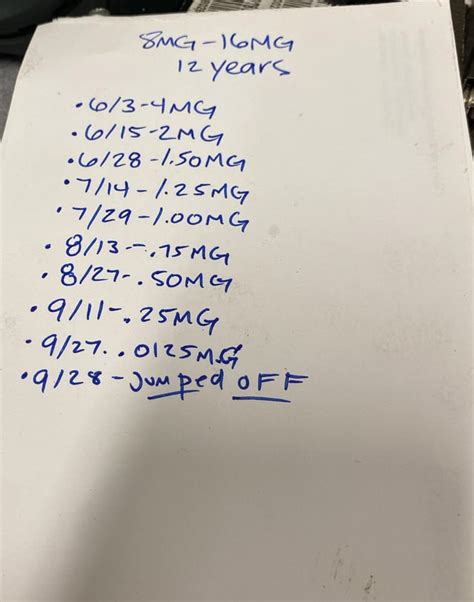 8MG-16MG
12 years
• 6/3-4MG
• 6/15-2MG
• 6/28-1.50MG
• 7/14-1.25MG
• 7/29-1.00MG
• 8/13-.75MG
• 8/27-.50MG
• 9/11-.25MG
• 9/27..0125MG
• 9/28-Jumped OFF